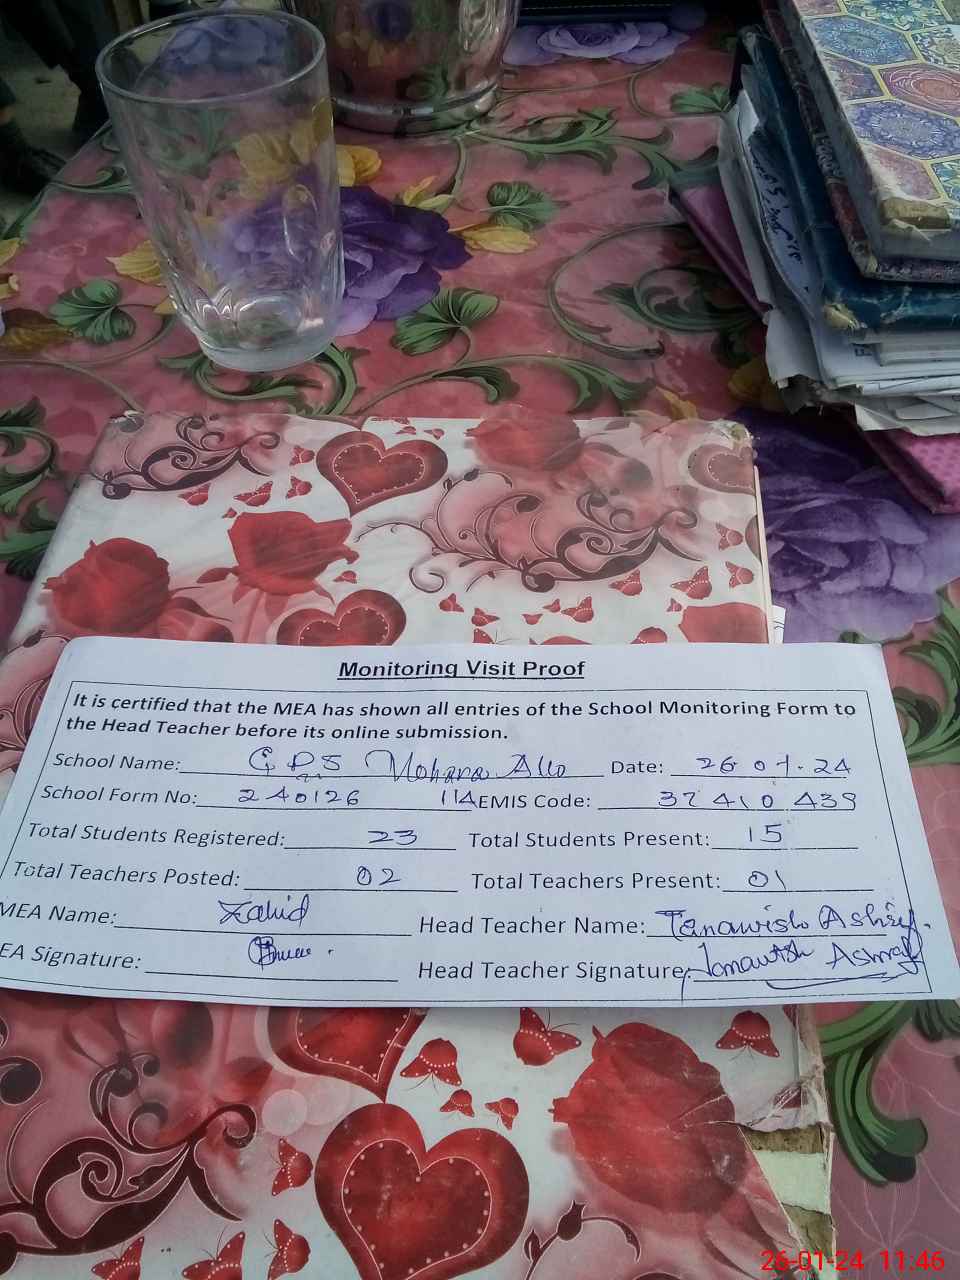 Monitoring Visit Proof
It is certified that the MEA has shown all entries of the School Monitoring Form to
the Head Teacher before its online submission.
School Name: GPS Mohara Allo Date: 26-01-24
School Form No: 240126 114 EMIS Code: 37410439
Total Students Registered: 23 Total Students Present: 15
Total Teachers Posted: 02 Total Teachers Present: 01
MEA Name: Zahid Head Teacher Name: Tanawish Ashraf.
EA Signature: Head Teacher Signature:
26-01-24 11:46